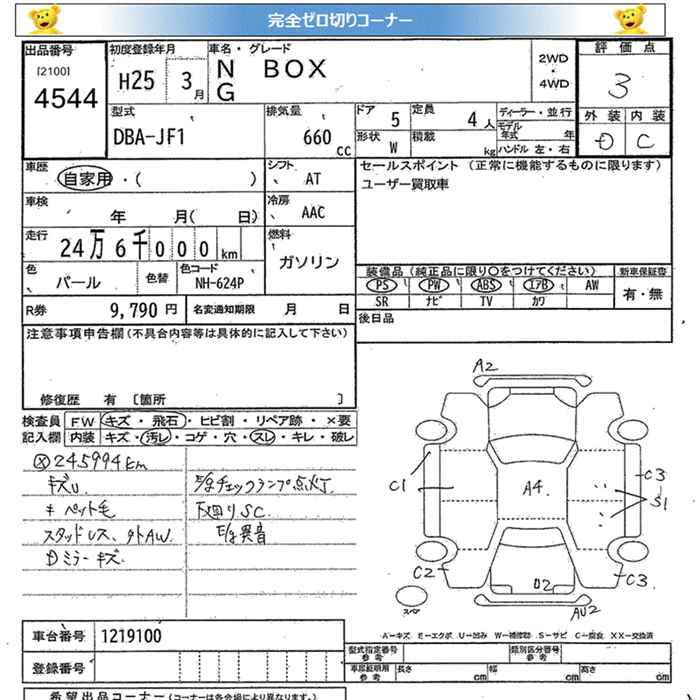 完全ゼロ切りコーナー
出品番号 初度登録年月 車名・グレード 評価点
[2100] 4544 H25 3月 N BOX 2WD・4WD 3
G
型式 排気量 ドア 5 定員 4人 ディーラー・並行 外装 内装
DBA-JF1 660 CC 形状 W 積載 kg モデル年式 年 D C
ハンドル 左・右
車歴 シフト セールスポイント (正常に機能するものに限ります)
自家用・( ) AT ユーザー買取車
車検 冷房
年 月( 日) AAC
走行 燃料
24万6千000km ガソリン
装備品 (純正品に限り〇をつけてください) 新車保証書
色 色替 色コード PS PW ABS エアB AW 有・無
パール NH-624P SR ナビ TV カワ
R券 9,790円 名変通知期限 月 日 後日品
注意事項申告欄(不具合内容等は具体的に記入して下さい)
修復歴 有 [箇所 ]
検査員 FW キズ・飛石・ヒビ割・リペア跡・×要
記入欄 内装 キズ・汚レ・コゲ・穴・スレ・キレ・破レ
245994km
キズU. E/gチェックランプ点灯
キ ペット毛 下回りSC.
スタッドレス、外AW. E/g異音
Dミラーキズ
A2
C1 A4 C3
S1
C2 D2 C3
スペア AU2
A―キズ E―エクボ U―凹み W―補修跡 S―サビ C―腐食 XX―交換済
車台番号 1219100
型式指定番号 参考 類別区分番号 参考
登録番号 車庫証明用 参考 長さ cm 幅 cm 高さ cm
希望出品コーナー (コーナーは各会場により異なります。)